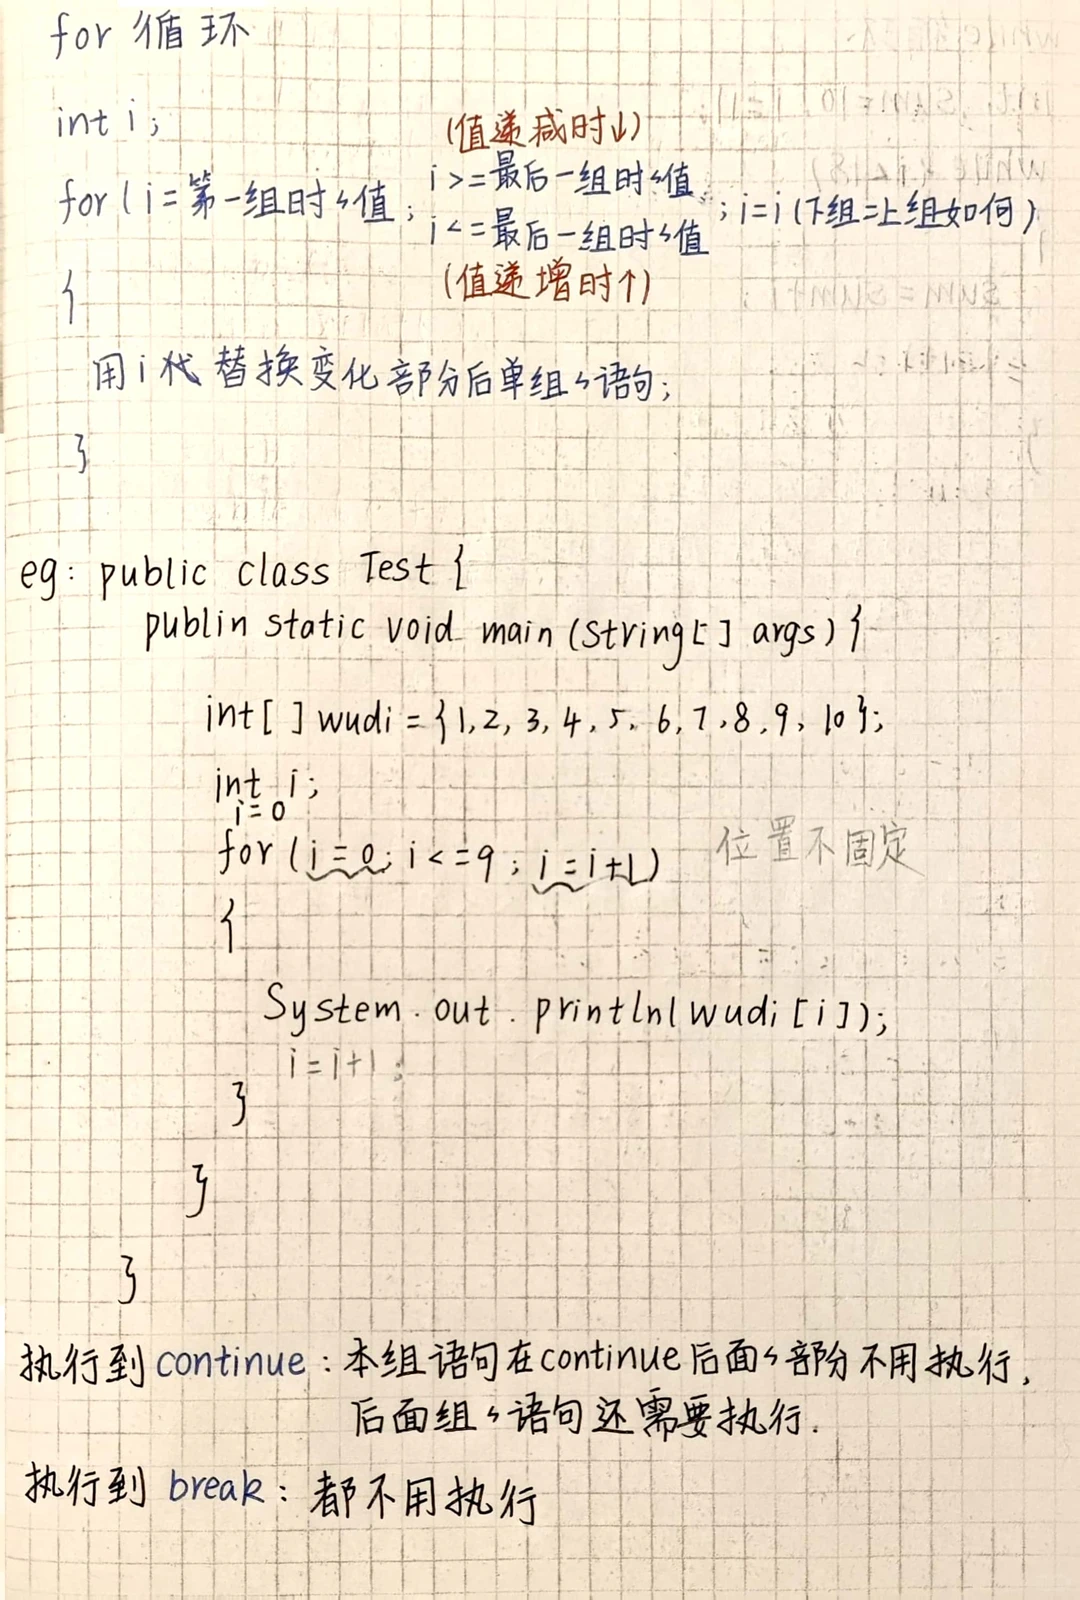 for 循环
int i;
(值递减时↓)
i>=最后一组时的值
for(i=第一组时的值; ; i=i(下组=上组如何)
i<=最后一组时的值
(值递增时↑)
{
用i代替换变化部分后单组的语句;
}
eg: public class Test {
publin static void main (String[] args) {
int[ ] wudi = {1,2,3,4,5,6,7,8,9,10};
int i;
i=0
for (i=0; i<=9; i=i+1) 位置不固定
{
System.out.println(wudi[i]);
i=i+1;
}
}
}
执行到continue:本组语句在continue后面的部分不用执行,
后面组的语句还需要执行.
执行到 break: 都不用执行